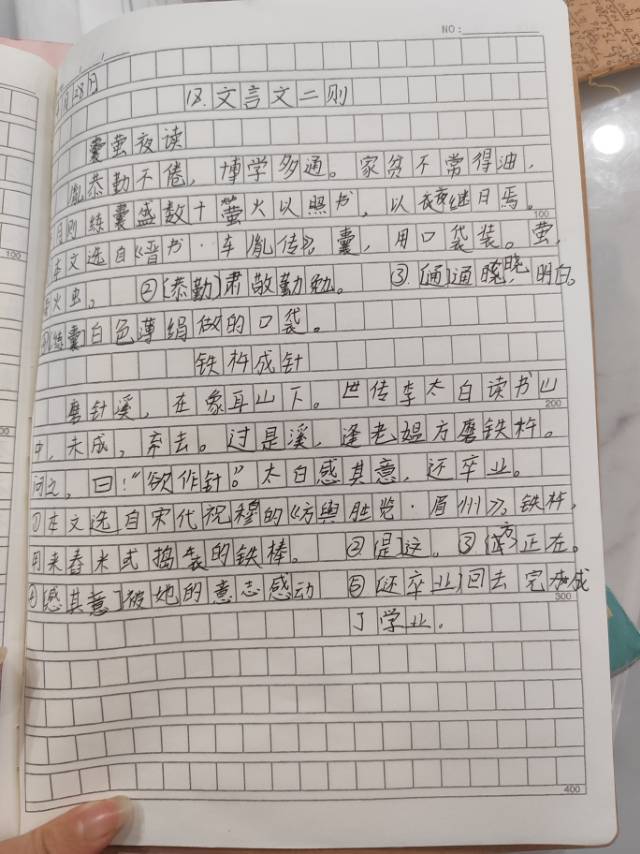 NO:
18.文言文二则
囊萤夜读
胤恭勤不倦，博学多通。家贫不常得油，
月则练囊盛数十萤火以照书，以夜继日焉。
100
本文选自《晋书·车胤传》。囊，用口袋装。萤，
萤火虫。 ②[恭勤]肃敬勤勉。 ③[通]通晓，明白。
练囊]白色薄绢做的口袋。
铁杵成针
磨针溪，在象耳山下。世传李太白读书山
200
中，未成，弃去。过是溪，逢老媪方磨铁杵。
问之，曰：“欲作针。”太白感其意，还卒业。
①本文选自宋代祝穆的《方舆胜览·眉州》。铁杵，
用来舂米或捣衣的铁棒。 ②[是]这。 ③[方]正在。
④[感其意]被她的意志感动 ⑤[还卒业]回去完成
300
了学业.
400